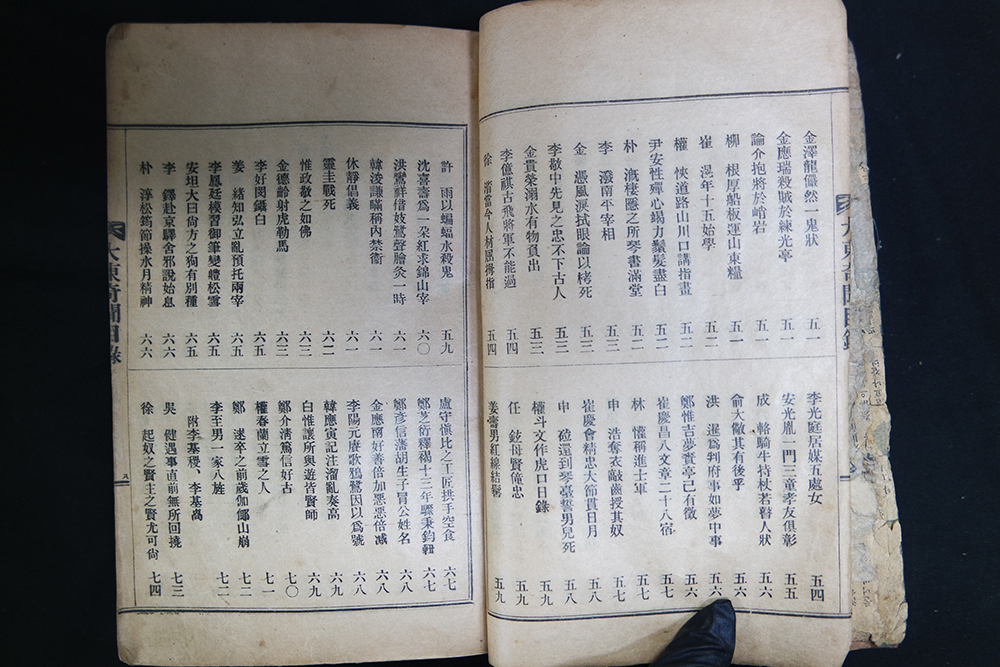 金澤龍儼然一鬼狀 五一
金應瑞殺賊於練光亭 五一
論介抱將於峭岩
柳 根厚船板運山東糧 五一
崔 滉年十五始學 五二
權 悏道路山川口講指畫 五二
尹安性殫心竭力鬚髮盡白 五二
朴 漑棲隱之所琴書滿堂 五二
李 潑南平宰相 五三
金 憑風淚拭眼論以栲死 五三
李敬中先見之忠不下古人 五三
金貴榮溺水有物負出 五三
李億祺古飛將軍不能過 五四
徐 渻當今人材屈拇指 五四
李光庭居媒五處女 五四
安光胤一門三童孝友俱彰 五五
成 輅騎牛特杖若瞽人狀 五六
俞大儆其有後乎 五六
洪 暹爲判府事如夢中事 五六
鄭惟吉夢賚亭己有徵 五六
崔慶昌八文章二十八宿 五七
林 懽稱進士軍 五七
申 浩奪衣敲齒授其奴 五七
崔慶會精忠大節貫日月 五八
申 硡還到琴臺誓男兒死 五八
權斗文作虎口日錄 五九
任 鉉母賢僮忠 五九
姜壽男紅線結鬱 五九
許 雨以蝙蝠水殺鬼 五九
沈喜壽爲一朶紅求錦山宰 六〇
洪鸞祥借妓鷺聲膾灸一時 六一
韓浚謙瞞稱內禁衛 六一
休靜倡義 六一
靈圭戰死 六二
惟政敬之如佛 六三
金德齡射虎勒馬 六三
李好閔鑷白 六五
姜 緖知弘立亂預托兩宰 六五
李鳳廷模習御筆變體松雪 六五
安坦大曰尙方之狗有別種 六五
李 鐸赴京驛舍邪說始息 六六
朴 淳松筠節操水月精神 六六
大東奇聞目錄
盧守愼比之工匠拱手空食 六七
鄭芝衍釋褐十三年驟秉鈞軺 六七
鄭彥信藩胡生子冒公姓名 六八
金應南好善倍加惡惡倍減 六八
李陽元賡歌鴉鷺因以爲號 六八
韓應寅記注溜亂奏高 六九
白惟讓所與遊皆賢師 六九
鄭介淸篤信好古 七〇
權春蘭立雪之人 七一
鄭 逑卒之前歲伽倻山崩 七二
李至男一家八旌 七二
附李基稷、李基卨
吳 健遇事直前無所回撓 七三
徐 起奴之賢主之賢尤可尙 七四